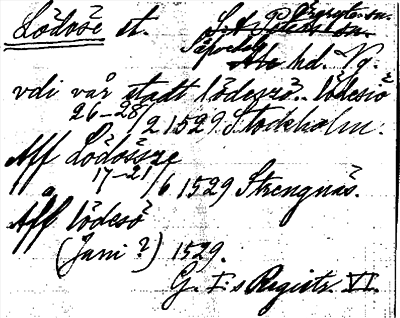 Lödöse st.
Sävedals
Ale hd. Vg.
vdi vår stadt lödeszö.. lödesiö
26-28/2 1529 Stockholm.
Aff Lödössze
17-21/6 1529 Strengnäs.
Aff lödesö
(Juni ?) 1529.
G. I:s Registr. VI.